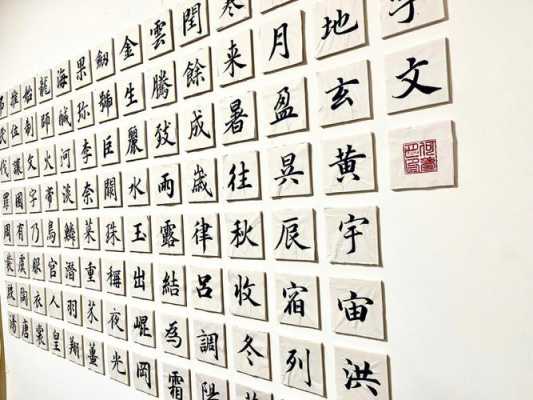 字文
地玄黄宇宙洪
月盈昃辰宿列
寒来暑往秋收冬
閏餘成歳律呂調陽
雲騰致雨露結為霜
金生麗水玉出崐岡
劒號巨闕珠稱夜光
果珎李奈菜重芥薑
海鹹河淡鱗潜羽翔
龍師火帝鳥官人皇
始制文字乃服衣裳
推位讓國有虞陶唐
民伐罪周發殷湯